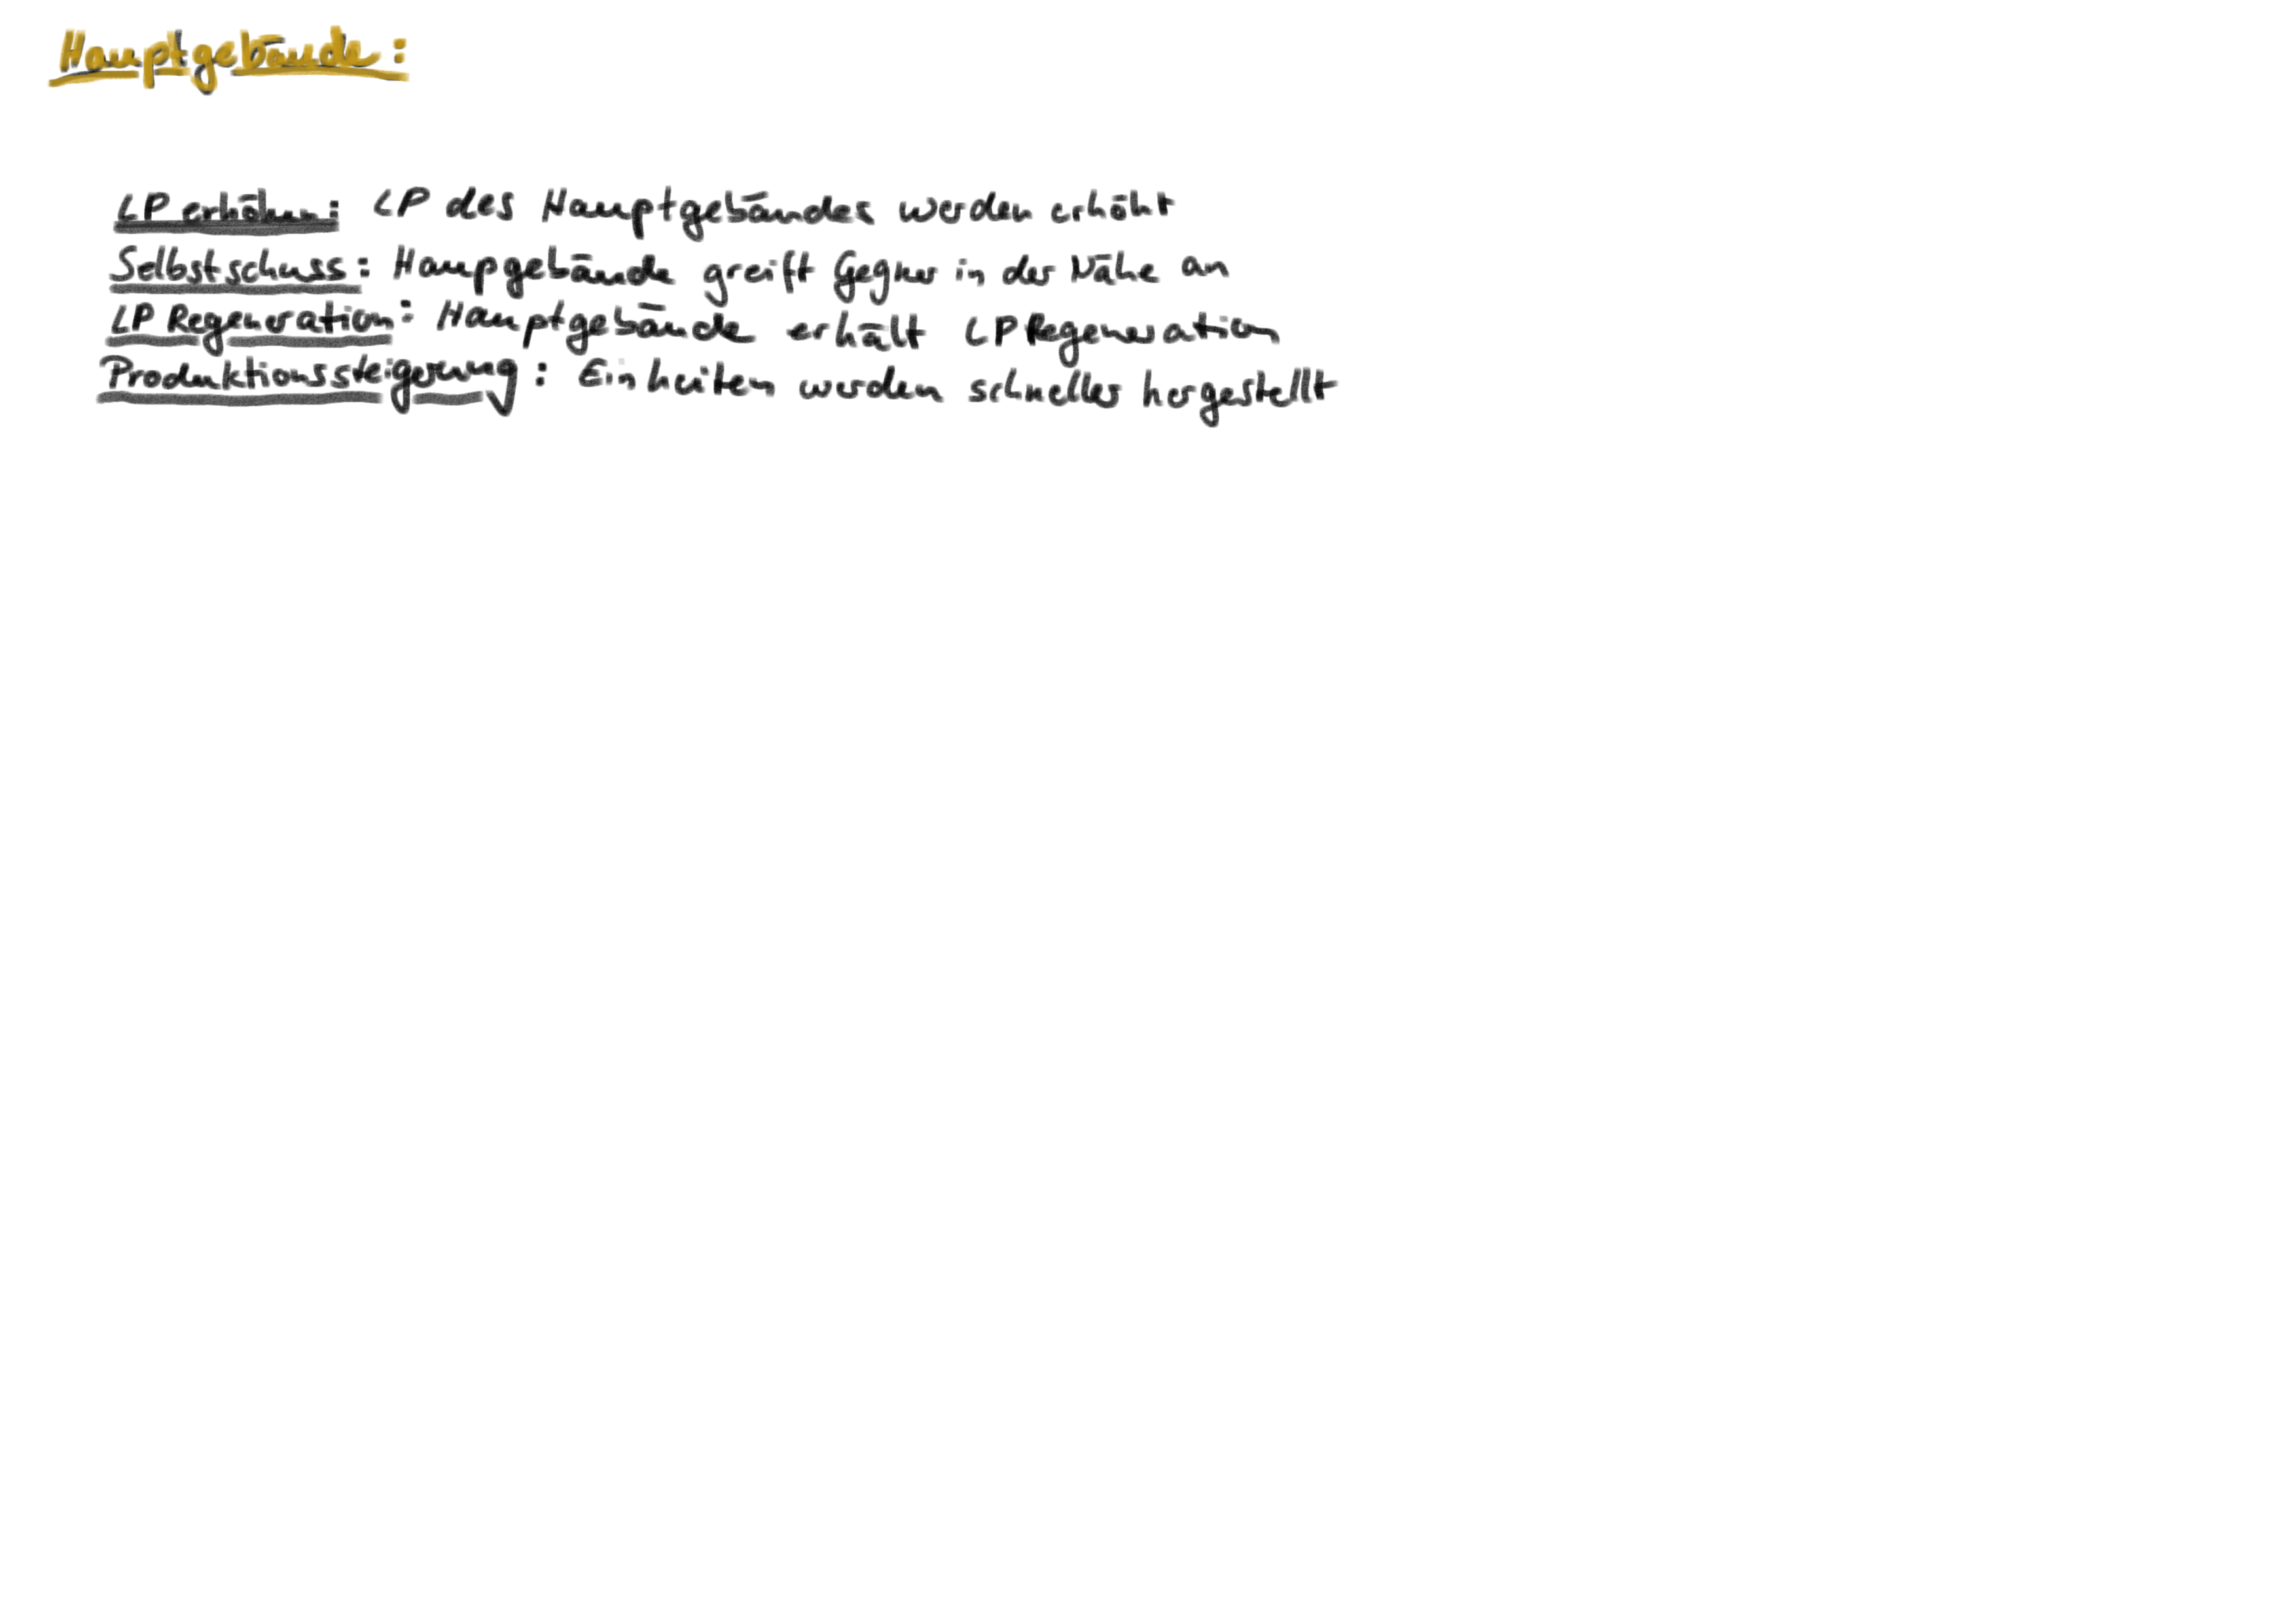 Hauptgebäude:
LP erhöhen: LP des Hauptgebäudes werden erhöht
Selbstschuss: Haupgebäude greift Gegner in der Nähe an
LP Regeneration: Hauptgebäude erhält LP Regeneration
Produktionssteigerung: Einheiten werden schneller hergestellt